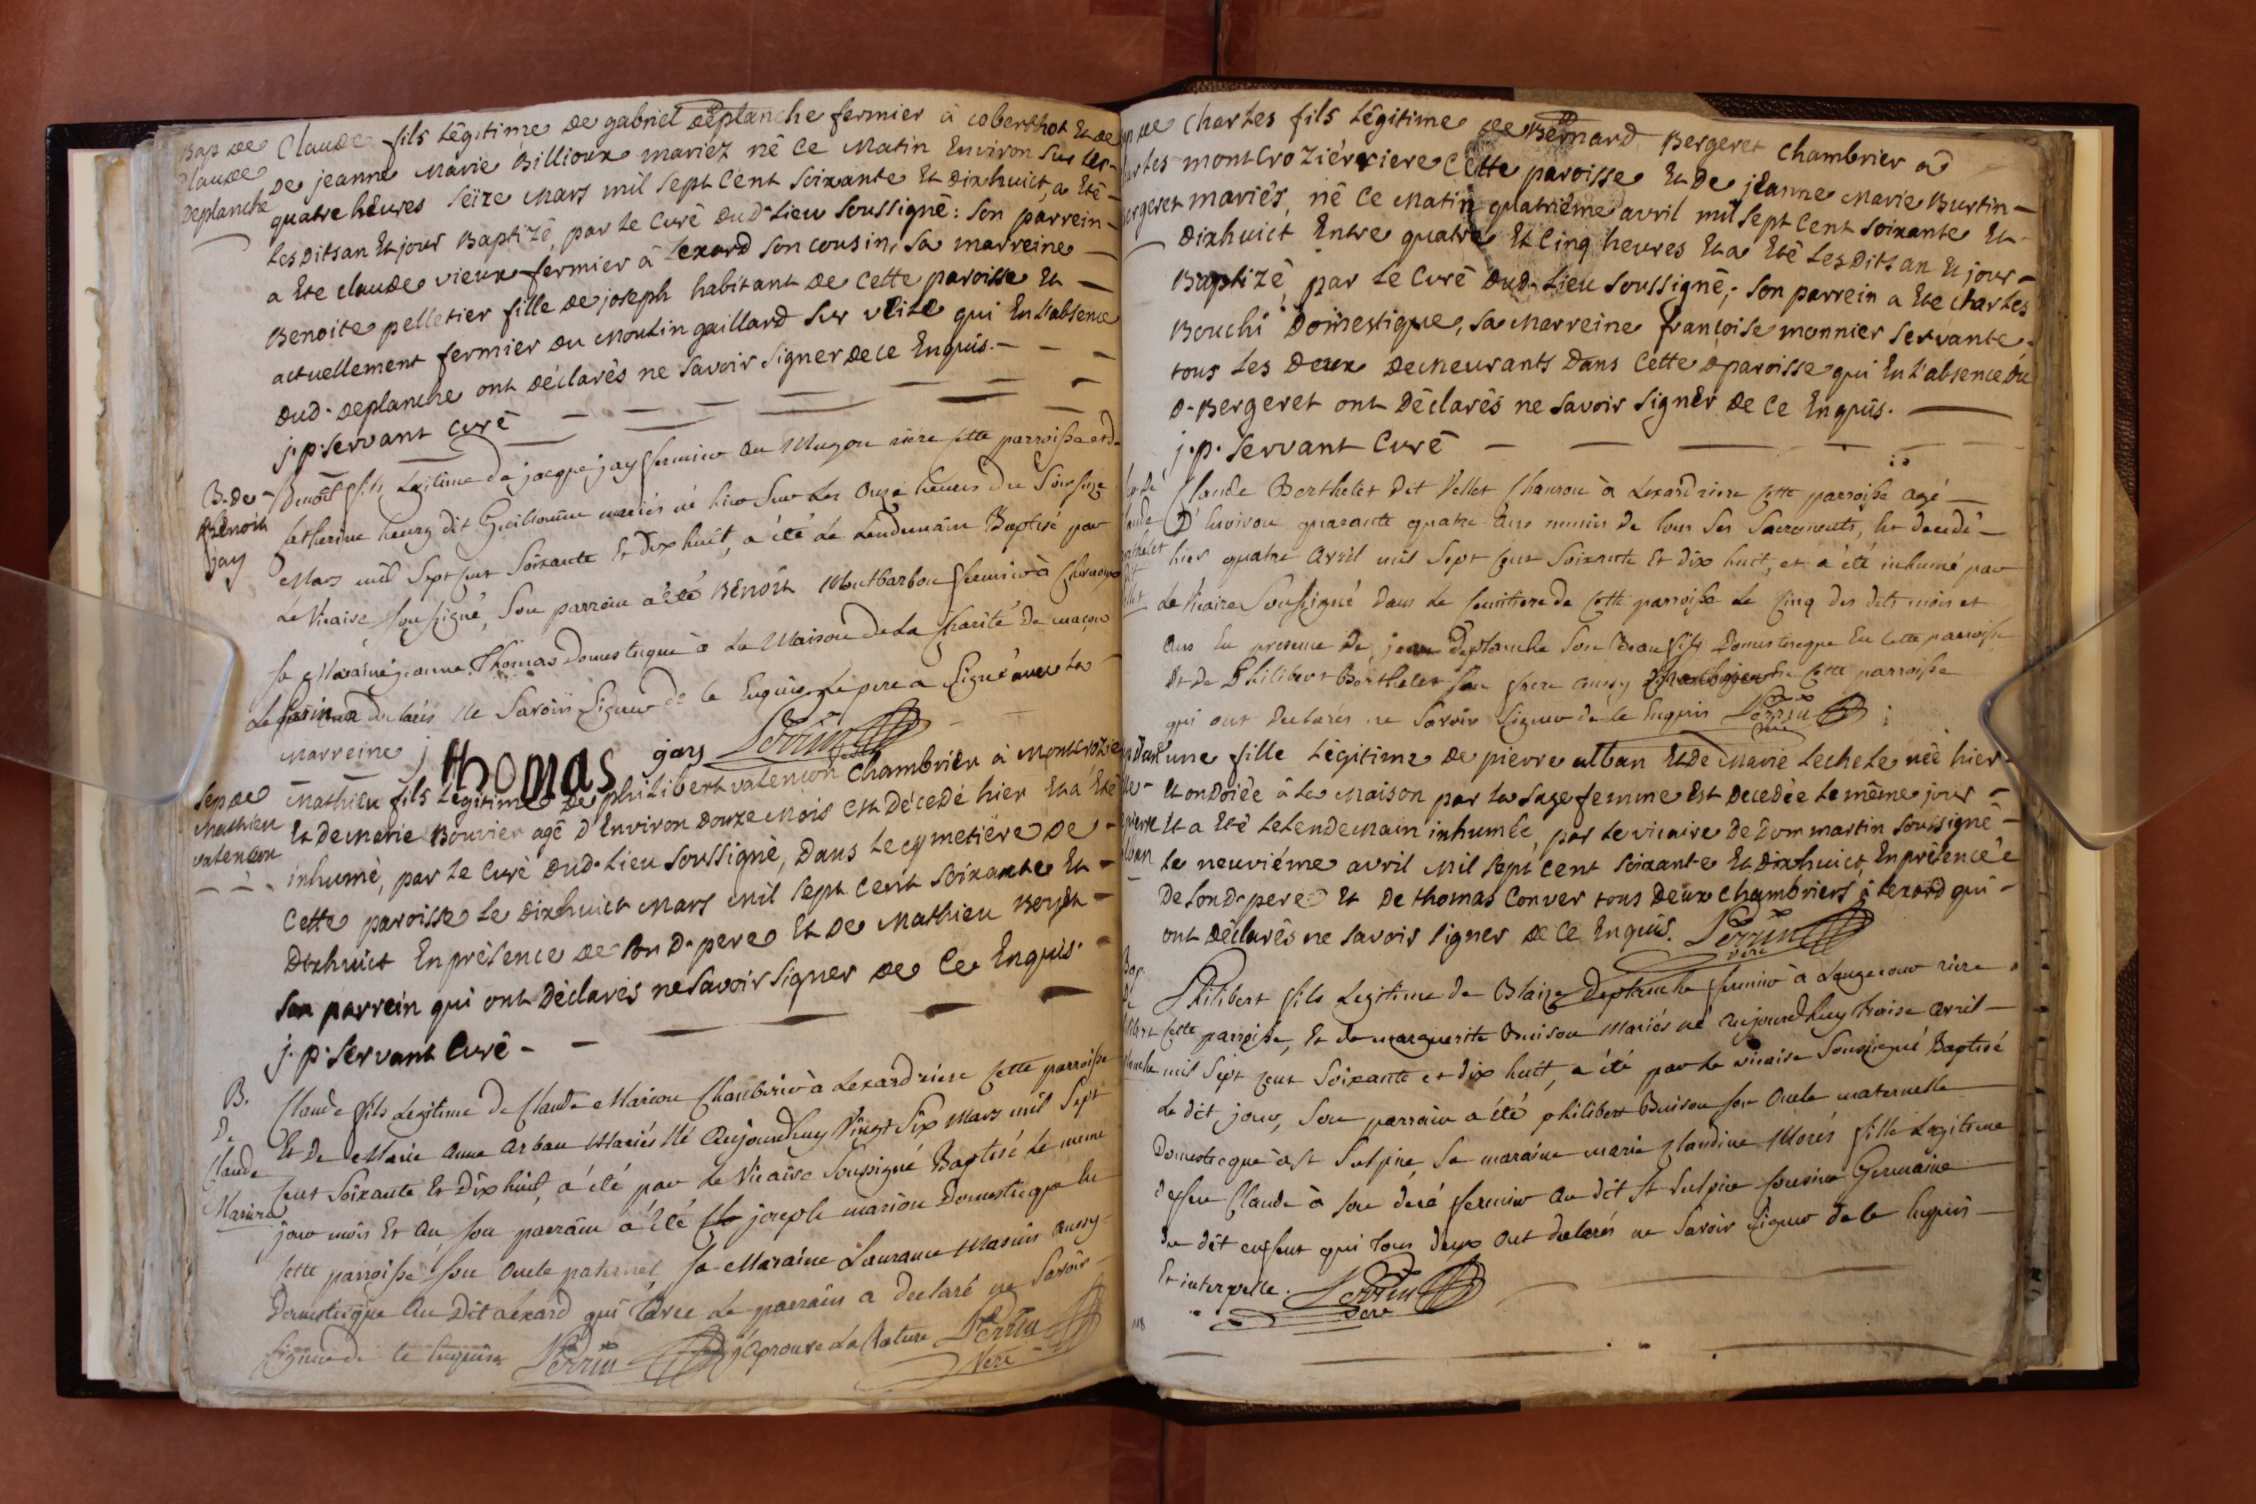 Bap de Claude fils Légitime de gabriel deplanche fermier à coberthot Et de
Claude de jeanne Marie Billioux mariéz né ce Matin Environ sur les
deplanche quatre héures séize Mars mil sept Cent soixante Et dixhuict, a Eté
les dits an Et jour Baptizé, par le Curé dud. Lieu soussigné: son parrein
a Ete claude vieux fermier à Lexard son cousin, sa marreine
Benoite pelletier fille de joseph habitant de Cette paroisse Et
actuellement fermier du Moulin gaillard sur qui En l'absence
dud. deplanche ont déclarés ne savoir signer de ce Enquis.
j. p. servant curé
B. de Benoît fils Legitime de jacque jay fermier au Mugou riere cette parroisse et de
Benoît Catherine heury dit Guillaume mariés né hier sur Les Onze heures du Soir
jay Mars mil Sept Cent Soixante Et Dix huit, a été Le Lendemain Baptisé par
Le Vicaire Soussigné, Son parrain a été Benoît Montbarbon fermier à
Sa Maraine jeanne Thomas Domestique à La Maison de La Charité de macon
Le parrein a declaré Ne Savoir Signer de ce Enquis Le pere a Signé avec La
Marreine j thomas jay Perrin
Sep de Mathieu fils Légitime de philibert valencon chambrier à Montcrozier
Mathieu Et de Merie Bouvier agé d'Environ douze Mois Est décedé hier Et a Eté
valencon inhumé, par le Curé dud. Lieu soussigné, dans le cymetiére de
Cette paroisse le dixhuict Mars mil sept Cent soixante Et
dixhuict En présence de son d. pere Et de Mathieu
son parrein qui ont déclarés ne savoir signer de Ce Enquis.
j. p. servant Curé
B. Claude fils Legitime de Claude Marion Chambrier à Lexard riere Cette parroisse
De Et De Marie Anne Arban Mariés Né Aujourdhuy Vingt Six Mars mil Sept
Claude Cent Soixante Et Dix huit, a été par le Vicaire Soussigné Baptisé Le meme
Marion jour mois Et An son parrain a Eté joseph marion Domestique En
Cette parroisse son Oncle paternel, sa Maraine Laurance Masuir aussy
Domestique Au Dit Lexard qui Avec Le parrain a declaré ne Savoir
Signer de ce Enquis Perrin j'aprouve La Rature Perrin
Vere
Charles fils Légitime de Bernard Bergeret chambrier à
montcroziér riere Cette paroisse Et de jeanne Marie Burtin
Bergeret mariés, né ce Matin quatriéme avril mil sept Cent soixante Et
dixhuict Entre quatre Et Cinq heures Et a Eté Les Dits an Et jour
Baptizé, par le Curé dud. Lieu soussigné; son parrein a Ete charles
Bouchi Domestique, sa Marreine françoise monnier servante
tous les deux demeurants dans Cette paroisse qui En l'absence du
d. Bergeret ont Déclarés ne savoir signer de Ce Enquis.
j. p. servant Curé
Claude Berthelet Dit Vellet à Lexard riere Cette parroisse agé
D'Environ quarante quatre Ans munis de tous Ses Sacrements, Est decedé
hier quatre Avril mil Sept Cent Soixante Et Dix huit, et a été inhumé par
Le Vicaire Soussigné dans Le Cemitiere de Cette parroisse Le Cinq des dits mois et
Ans En presence De jean deplanche Son Beau fils Domestique En Cette parroisse
Et de Philibert Berthelet Son frere aussy Cette parroisse
qui ont Declarés ne Savoir Signer de Ce Enquis Perrin
une fille Légitime de pierre alban Et de Marie Lechele née hier
Et ondoiée à la Maison par la sage femme Est Decedée le même jour
pierre Et a Eté le lendemain inhumée, par le vicaire de Dommartin soussigné
alban Le neuviéme avril Mil sept Cent soixante Et dixhuict, En présence
de son d. pere Et de thomas Conver tous Deux Chambriers à Lexard qui
ont Déclarés ne savoir signer de Ce Enquis. Perrin
vere
Bap Philibert fils Legitime de Blaize Deplanche fermier à riere
De Cette parroisse, Et de marguerite Buison Mariés né Aujourdhuy treize Avril
mil Sept Cent Soixante et dix huit, a été par le vicaire Soussigné Baptisé
Le dit jour, Son parrain a été philibert Buison son Oncle maternelle
Domestique à St Sulpice, Sa maraine marie Claudine Morés fille Legitime
Claude fermier Au dit St Sulpice Cousine Germaine
du dit enfant qui tous deux ont declarés ne Savoir Signer de ce Enquis
Et interpelle. Perrin
Vere
118